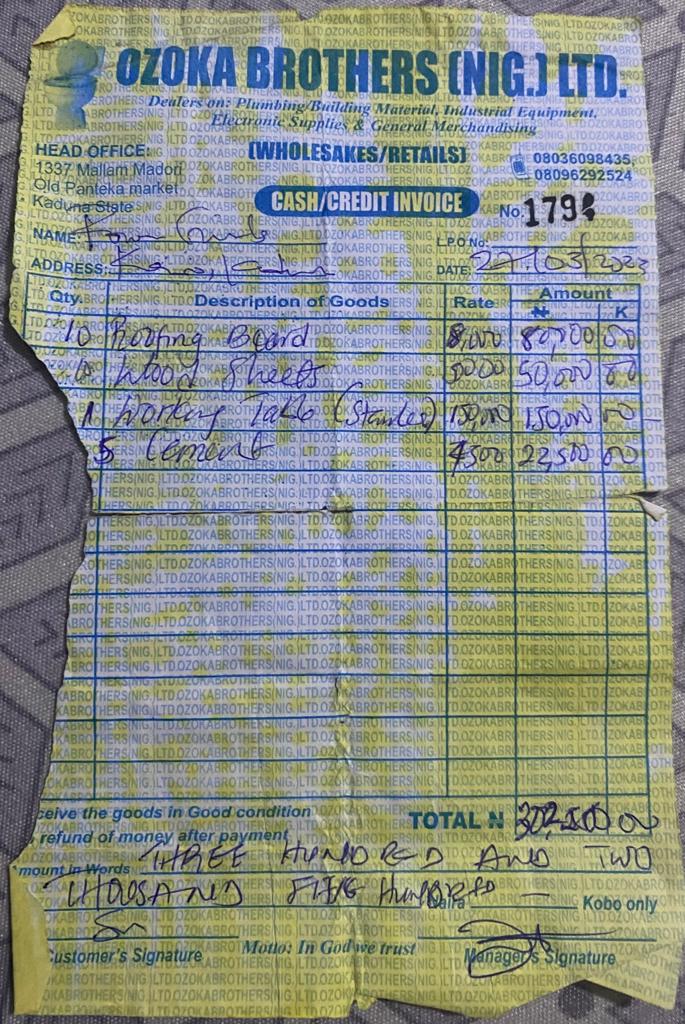 OZOKA BROTHERS (NIG.) LTD.
Dealers on: Plumbing/Building Material, Industrial Equipment,
Electronic Supplies & General Merchandising
HEAD OFFICE:
1337 Mallam Madori
Old Panteka market
Kaduna State
(WHOLESAKES/RETAILS)
08036098435,
08096292524
CASH/CREDIT INVOICE
No. 179
NAME:
L.P.O No:
ADDRESS:
DATE: 27/03/2023
Qty. Description of Goods Rate Amount
₦ K
10 Roofing Board 8,000 80,000 00
Wood Sheets 5000 50,000 00
1 Working Table (Stanley) 150,000 150,000 00
5 Cement 4500 22,500 00
ceive the goods in Good condition
refund of money after payment
TOTAL N 302,500 00
mount in Words THREE HUNDRED AND TWO
THOUSAND FIVE HUNDRED — Naira Kobo only
Customer's Signature
Motto: In God we trust
Manager's Signature